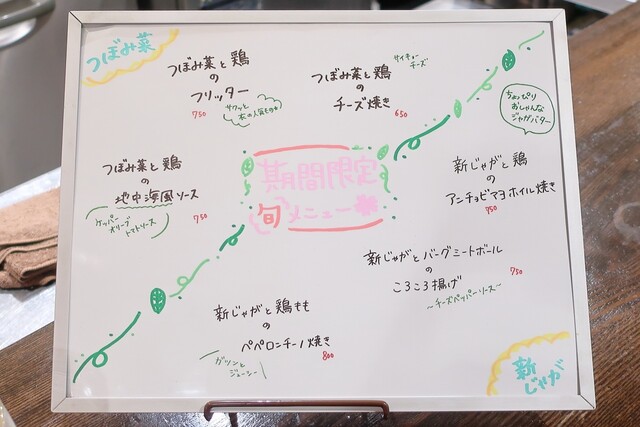 つぼみ菜
つぼみ菜と鶏
の
フリッター
750
サクッと
つぼみ菜と鶏
の
チーズ焼き
650
チーズ
ちょっぴり
おしゃんな
ジャガバター
期間限定
旬メニュー
つぼみ菜と鶏
の
地中海風ソース
750
ケッパー
オリーブ
トマトソース
新じゃがと鶏
の
アンチョビマヨホイル焼き
750
新じゃがとバーグミートボール
の
ころころ揚げ
750
~チーズペッパーソース~
新じゃがと鶏もも
の
ペペロンチーノ焼き
800
ガツンと
ジューシー
新
じゃが